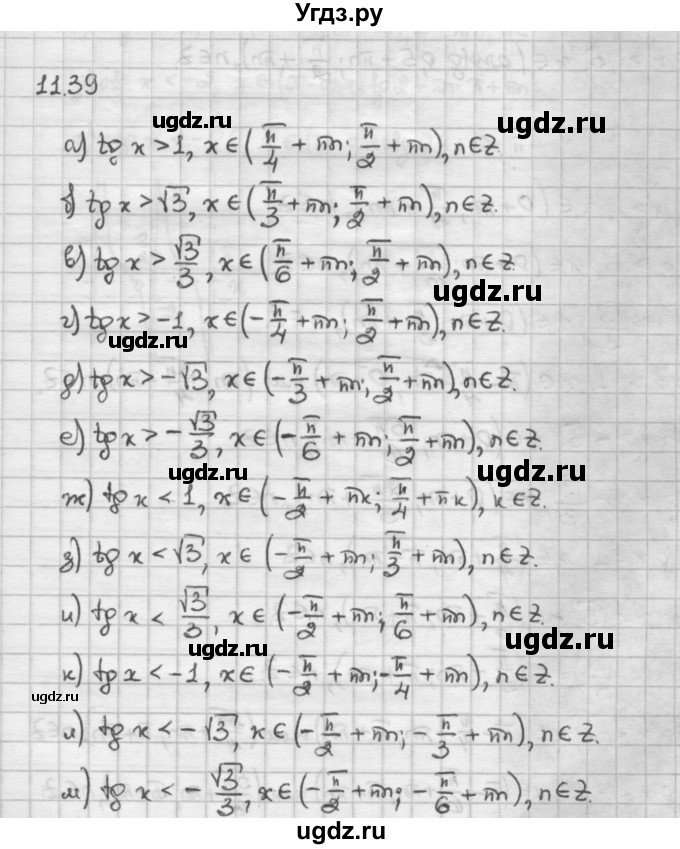 Угдз.ру
11.39
а) tg x > 1, x ∈ (π/4 + πn; π/2 + πn), n ∈ Z.
ugdz.ru ugdz.ru
б) tg x > √3, x ∈ (π/3 + πn; π/2 + πn), n ∈ Z.
в) tg x > √3/3, x ∈ (π/6 + πn; π/2 + πn), n ∈ Z.
ugdz.ru
г) tg x > -1, x ∈ (-π/4 + πn; π/2 + πn), n ∈ Z.
ugdz.ru
д) tg x > -√3, x ∈ (-π/3 + πn; π/2 + πn), n ∈ Z.
ugdz.ru
е) tg x > -√3/3, x ∈ (-π/6 + πn; π/2 + πn), n ∈ Z.
ugdz.ru ugdz.ru
ж) tg x < 1, x ∈ (-π/2 + πk; π/4 + πk), k ∈ Z.
з) tg x < √3, x ∈ (-π/2 + πn; π/3 + πn), n ∈ Z.
ugdz.ru
и) tg x < √3/3, x ∈ (-π/2 + πn; π/6 + πn), n ∈ Z.
ugdz.ru
ugdz.ru
к) tg x < -1, x ∈ (-π/2 + πn; -π/4 + πn), n ∈ Z.
ugdz.ru
л) tg x < -√3, x ∈ (-π/2 + πn; -π/3 + πn), n ∈ Z.
ugdz.ru
м) tg x < -√3/3, x ∈ (-π/2 + πn; -π/6 + πn), n ∈ Z.
ugdz.ru